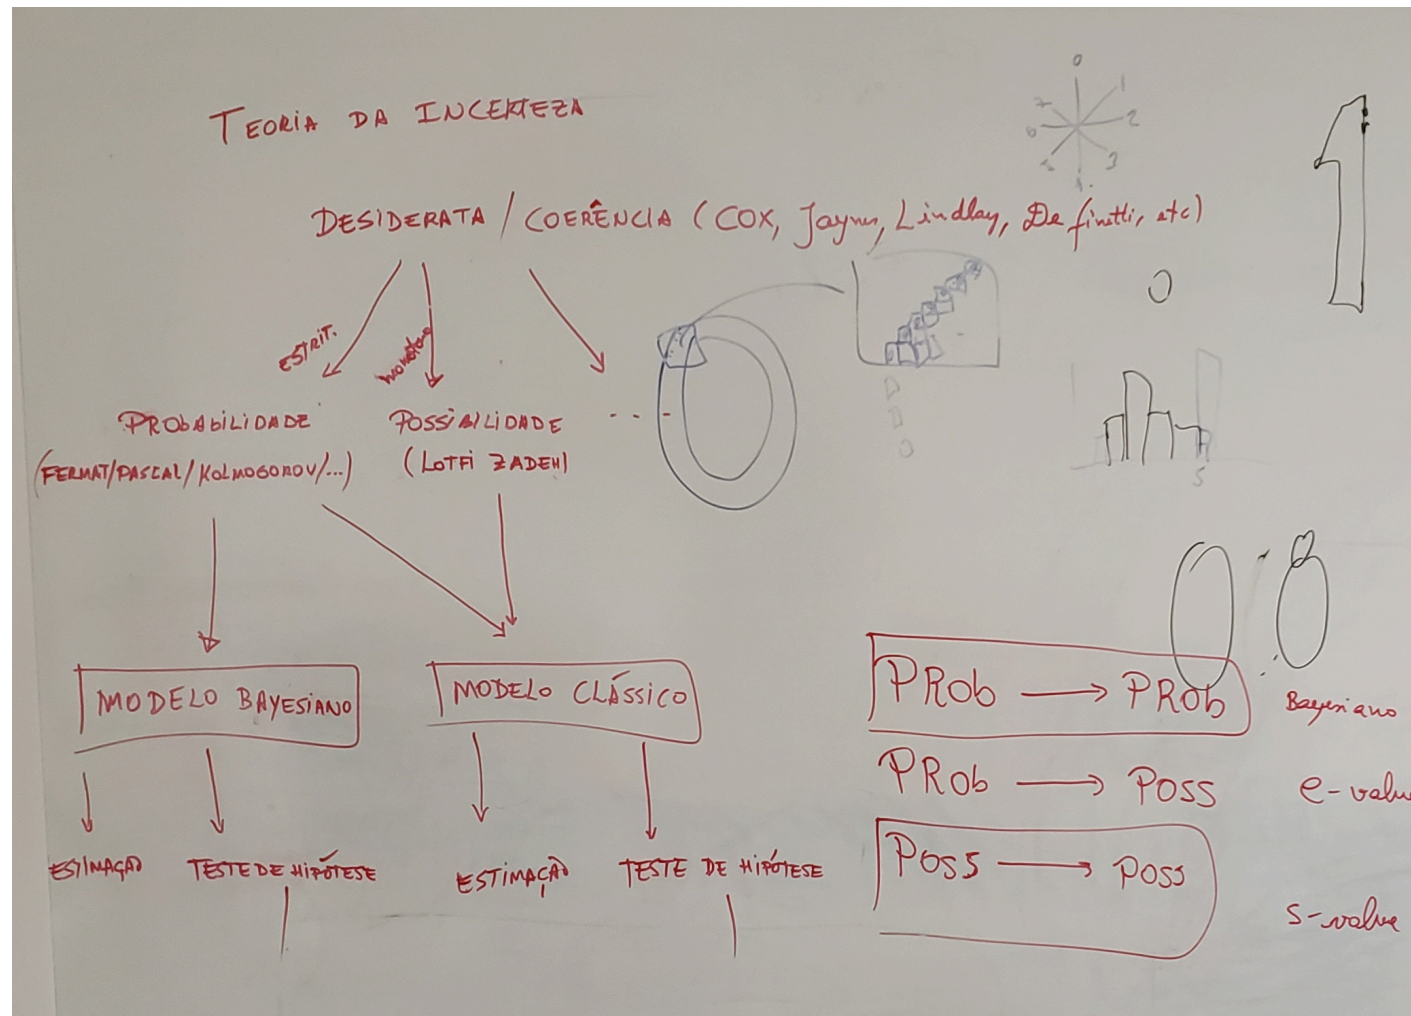 TEORIA DA INCERTEZA
DESIDERATA / COERÊNCIA (COX, Jaynes, Lindley, De Finetti, etc)
ESTRIT.
PROBABILIDADE
POSSIBILIDADE
...
(FERMAT/PASCAL/KOLMOGOROV/...)
(LOTFI ZADEH)
MODELO BAYESIANO
MODELO CLÁSSICO
ESTIMAÇÃO
TESTE DE HIPÓTESE
ESTIMAÇÃO
TESTE DE HIPÓTESE
0
1
2
3
1
0
PROB → PROB Bayesiano
PROB → POSS e-value
POSS → POSS s-value